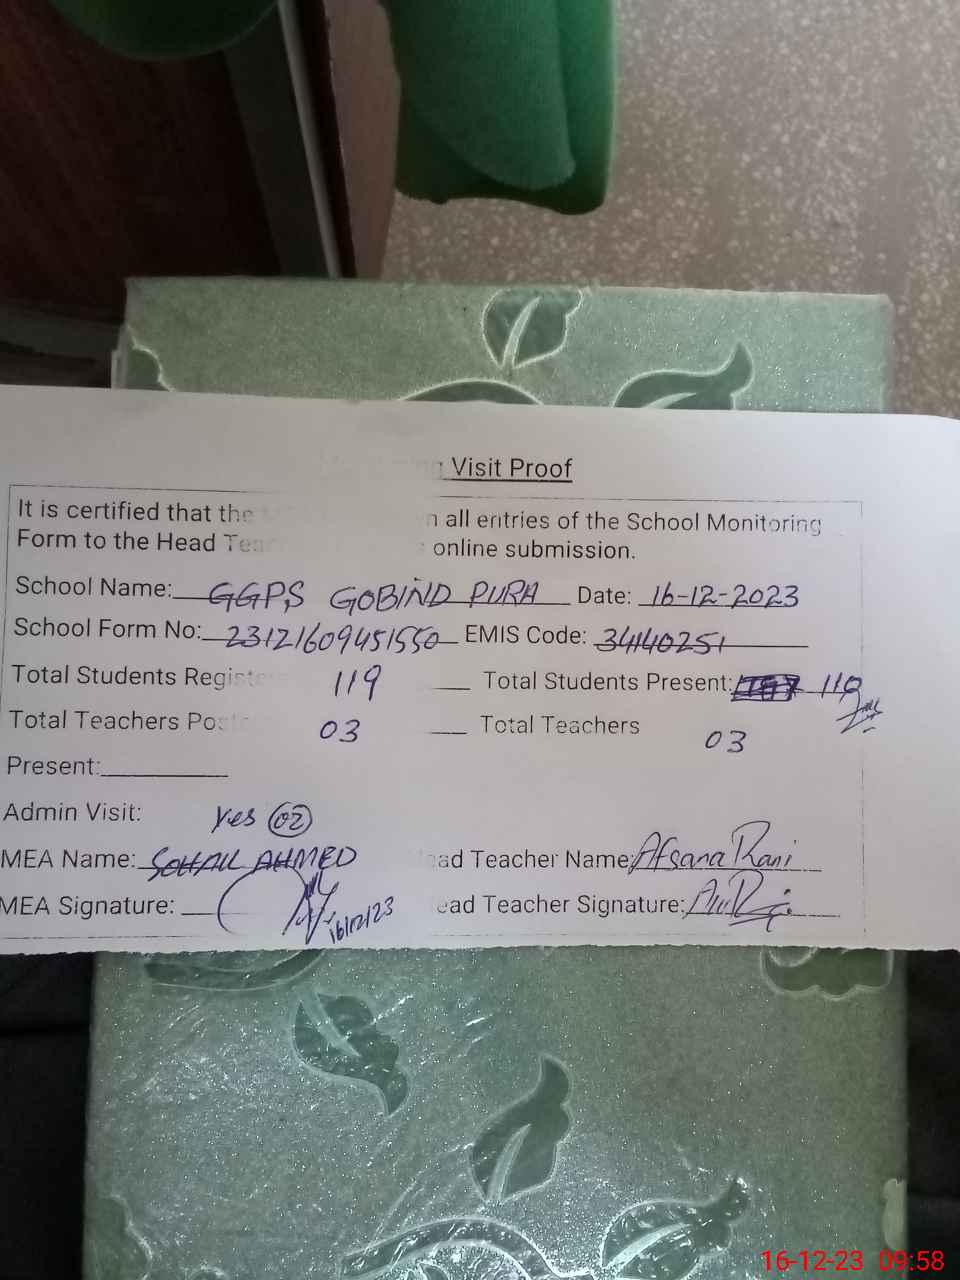 Visit Proof
It is certified that the all entries of the School Monitoring
Form to the Head online submission.
School Name: GGPS GOBIND PURA Date: 16-12-2023
School Form No: 23121609451550 EMIS Code: 34140251
Total Students 119 Total Students Present: 110
Total Teachers 03 Total Teachers 03
Present:
Admin Visit: Yes 02
MEA Name: SOHAIL AHMED Teacher Name: Afsana Rani
MEA Signature: 16/12/23 Teacher Signature:
16-12-23 09:58